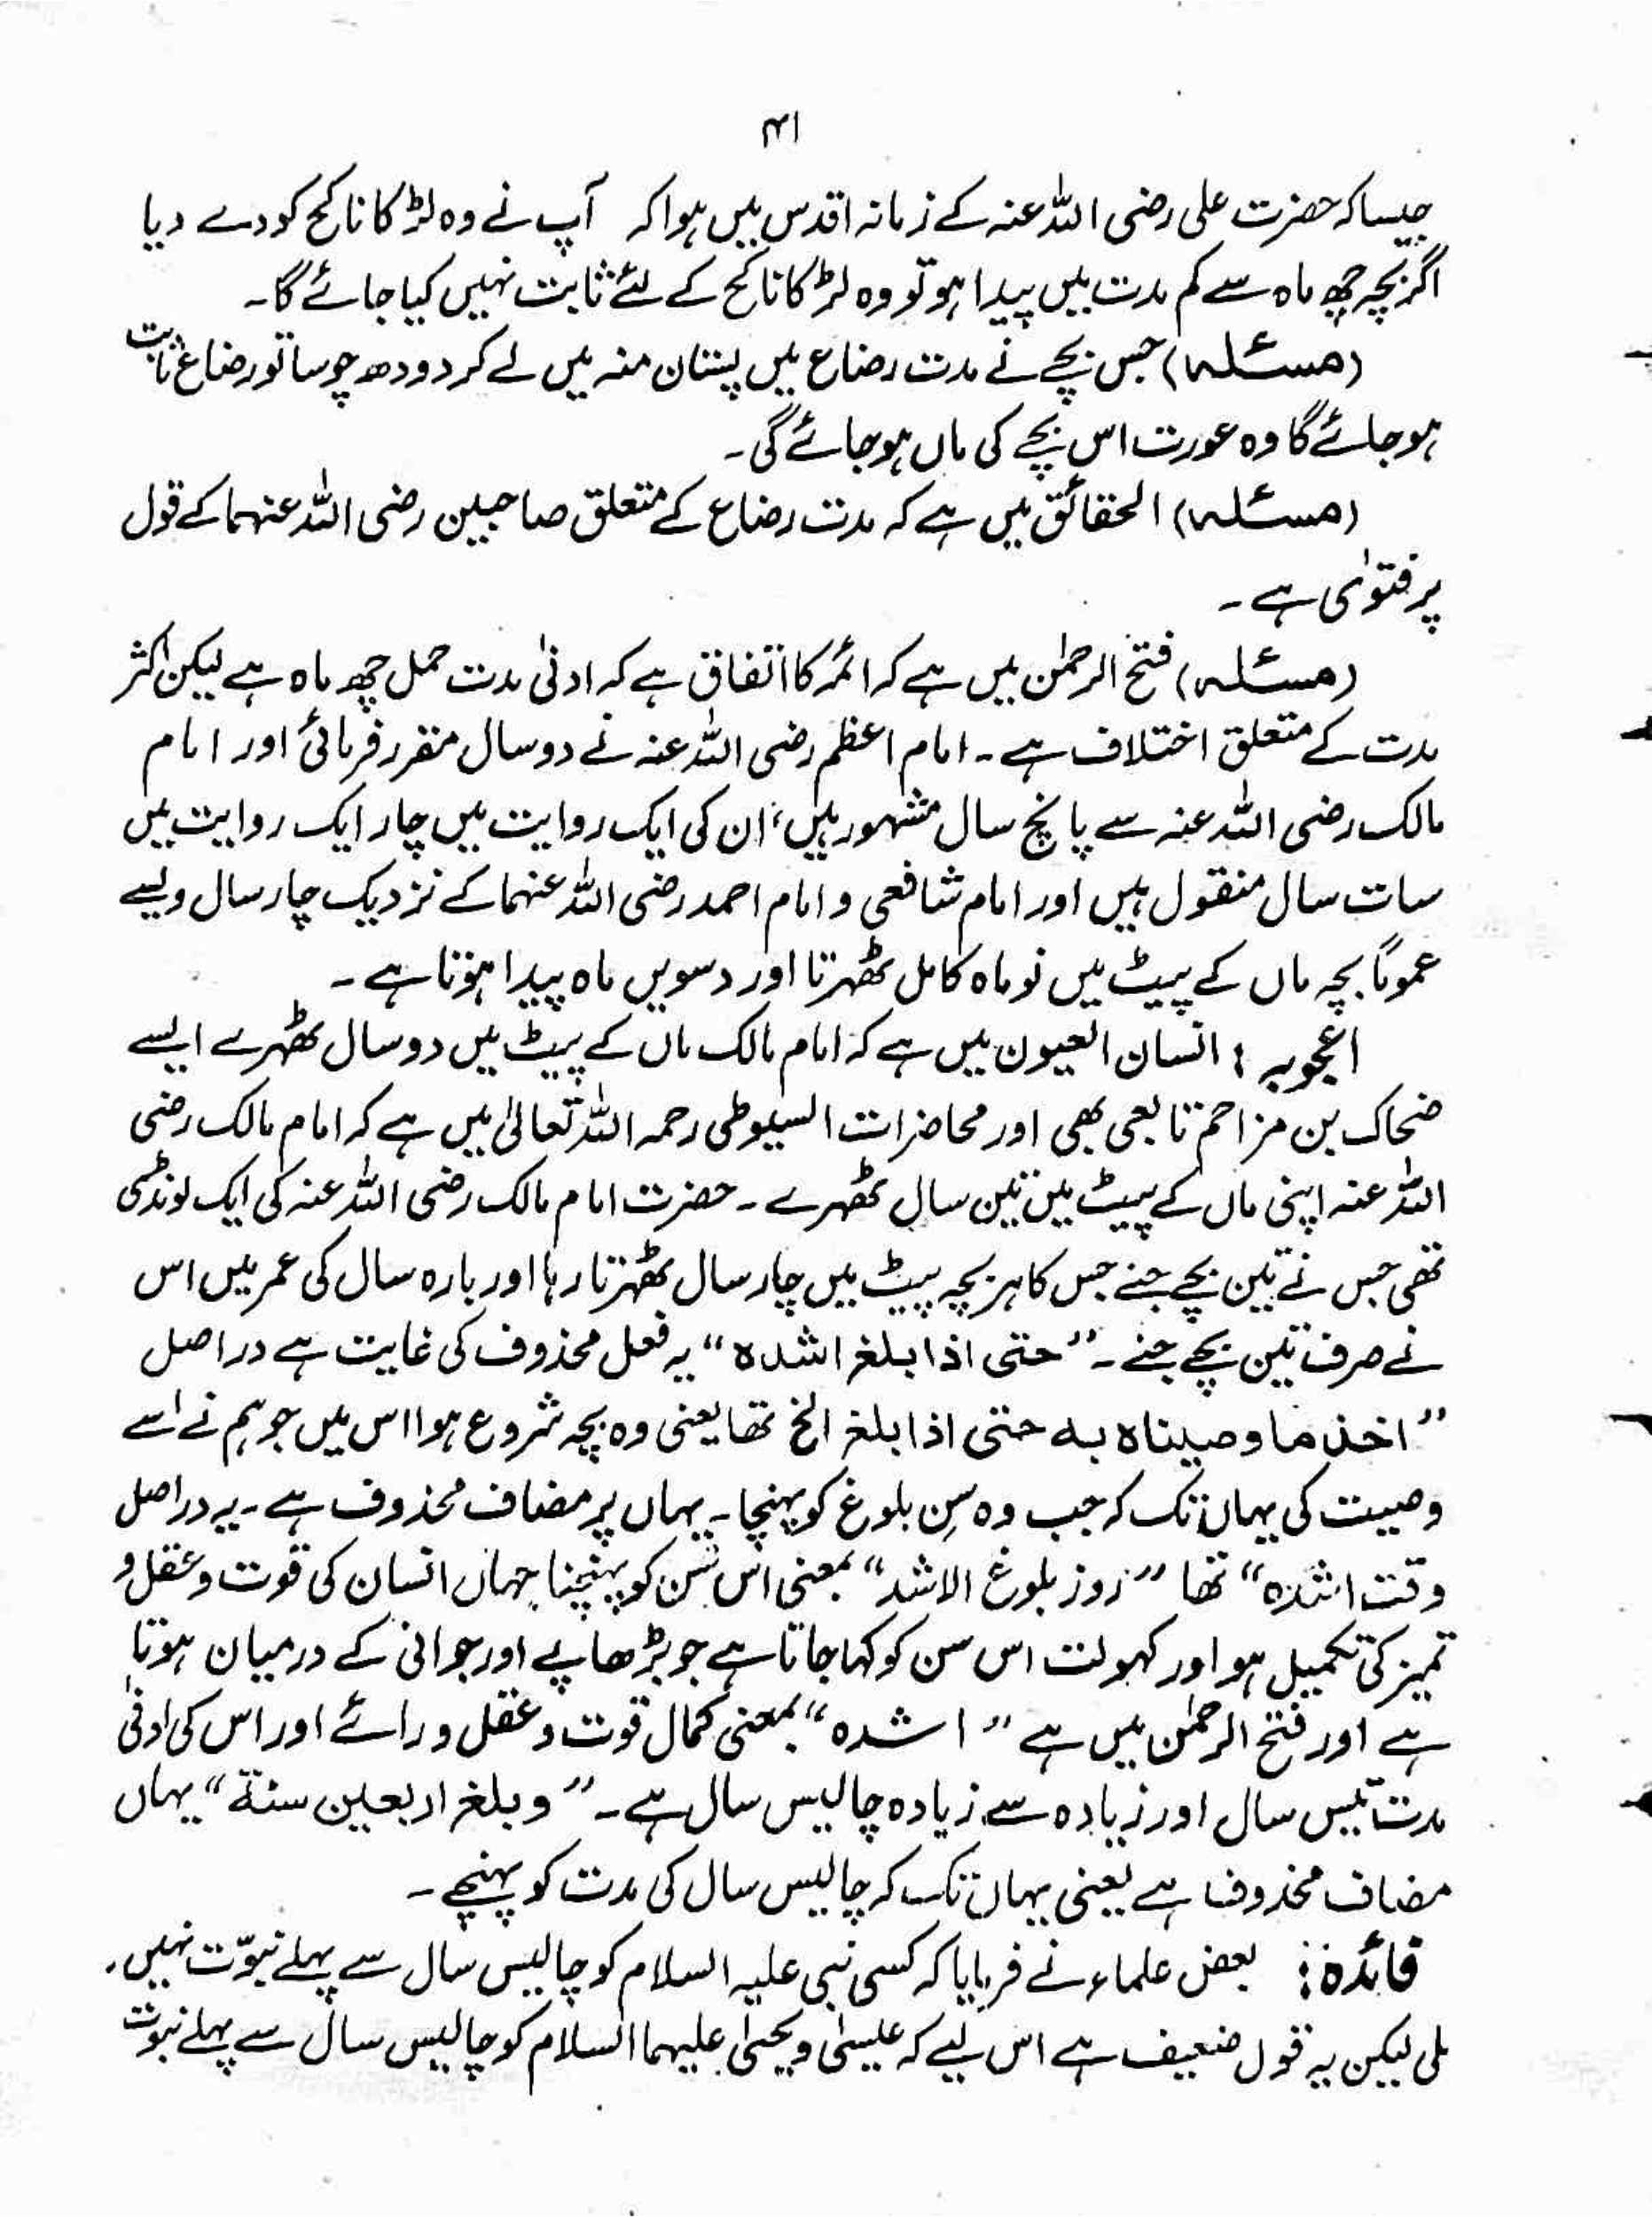 ۴۱
جیساکہ حضرت علی رضی اللہ عنہ کے زمانہ اقدس میں ہوا کہ آپ نے وہ لڑکا ناکح کو دے دیا
اگر بچہ چھ ماہ سے کم مدت میں پیدا ہو تو وہ لڑکا ناکح کے لئے ثابت نہیں کیا جائے گا۔
(مسئلہ) جس بچے نے مدت رضاع میں پستان منہ میں لے کر دودھ چوسا تو رضاع ثابت
ہو جائے گا وہ عورت اس بچے کی ماں ہو جائے گی۔
(مسئلہ) الحقائق میں ہے کہ مدت رضاع کے متعلق صاحبین رضی اللہ عنہما کے قول
پر فتویٰ ہے۔
(مسئلہ) فتح الرحمٰن میں ہے کہ ائمہ کا اتفاق ہے کہ ادنیٰ مدت حمل چھ ماہ ہے لیکن اکثر
مدت کے متعلق اختلاف ہے۔ امام اعظم رضی اللہ عنہ نے دو سال مقرر فرمائی اور امام
مالک رضی اللہ عنہ سے پانچ سال مشہور ہیں، ان کی ایک روایت میں چار ایک روایت میں
سات سال منقول ہیں اور امام شافعی و امام احمد رضی اللہ عنہما کے نزدیک چار سال ویسے
عموماً بچہ ماں کے پیٹ میں نو ماہ کامل ٹھہرتا اور دسویں ماہ پیدا ہوتا ہے۔
اعجوبہ : انسان العیون میں ہے کہ امام مالک ماں کے پیٹ میں دو سال ٹھہرے ایسے
ضحاک بن مزاحم تابعی بھی اور محاضرات السیوطی رحمہ اللہ تعالیٰ میں ہے کہ امام مالک رضی
اللہ عنہ اپنی ماں کے پیٹ میں تین سال ٹھہرے۔ حضرت امام مالک رضی اللہ عنہ کی ایک لونڈی
تھی جس نے تین بچے جنے جس کا ہر بچہ پیٹ میں چار سال ٹھہرتا رہا اور بارہ سال کی عمر میں اس
نے صرف تین بچے جنے۔ "حتی اذا بلغ اشدہ" یہ فعل محذوف کی غایت ہے دراصل
"اخذ ما وصیناہ بہ حتی اذا بلغ الخ تھا یعنی وہ بچہ شروع ہوا اس میں جو ہم نے اسے
وصیت کی یہاں تک کہ جب وہ سِن بلوغ کو پہنچا۔ یہاں پر مضاف محذوف ہے۔ یہ دراصل
وقت اشدہ" تھا "روز بلوغ الاشد" بمعنی اس سن کو پہنچنا جہاں انسان کی قوت و عقل و
تمیز کی تکمیل ہو اور کہولت اس سن کو کہا جاتا ہے جو بڑھاپے اور جوانی کے درمیان ہوتا
ہے اور فتح الرحمٰن میں ہے "اشدہ" بمعنی کمال قوت و عقل و رائے اور اس کی ادنیٰ
مدت تیس سال اور زیادہ سے زیادہ چالیس سال ہے۔ "وبلغ اربعین سنة" یہاں
مضاف محذوف ہے یعنی یہاں تک کہ چالیس سال کی مدت کو پہنچے۔
فائدہ : بعض علماء نے فرمایا کہ کسی نبی علیہ السلام کو چالیس سال سے پہلے نبوّت نہیں
ملی لیکن یہ قول ضعیف ہے اس لیے کہ عیسیٰ و یحییٰ علیہما السلام کو چالیس سال سے پہلے نبوت